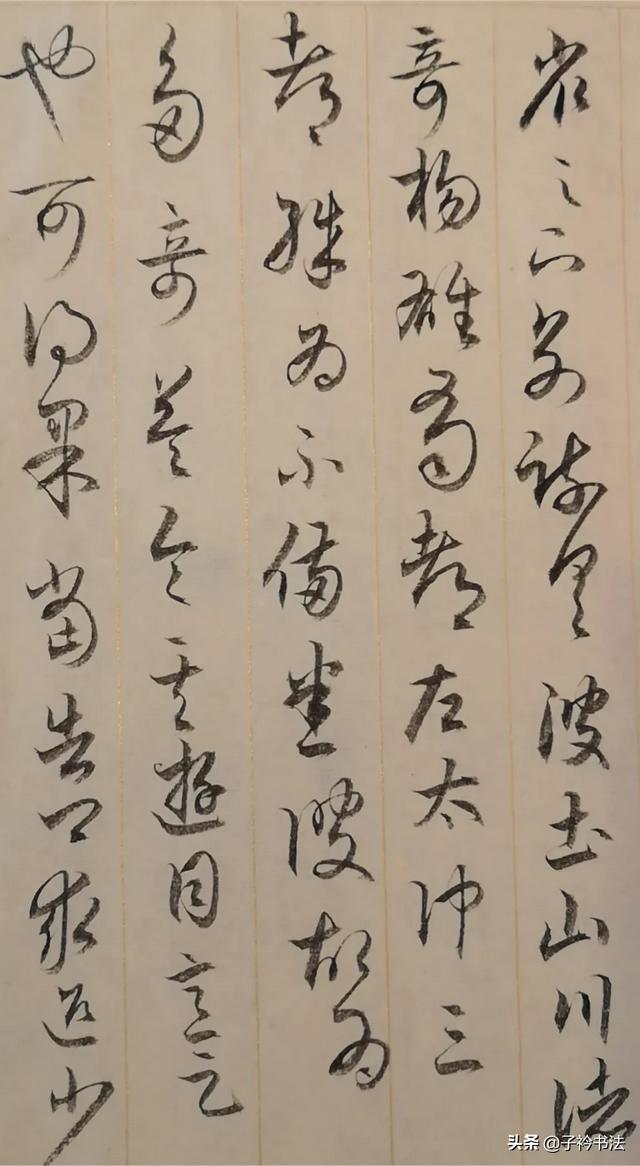 省足下別疏具彼土山川諸
奇楊雄蜀都左太沖三
都殊為不備悉彼故為
多奇益令其遊目意足
也可得果當告卿求迎少
头条 @子衿书法